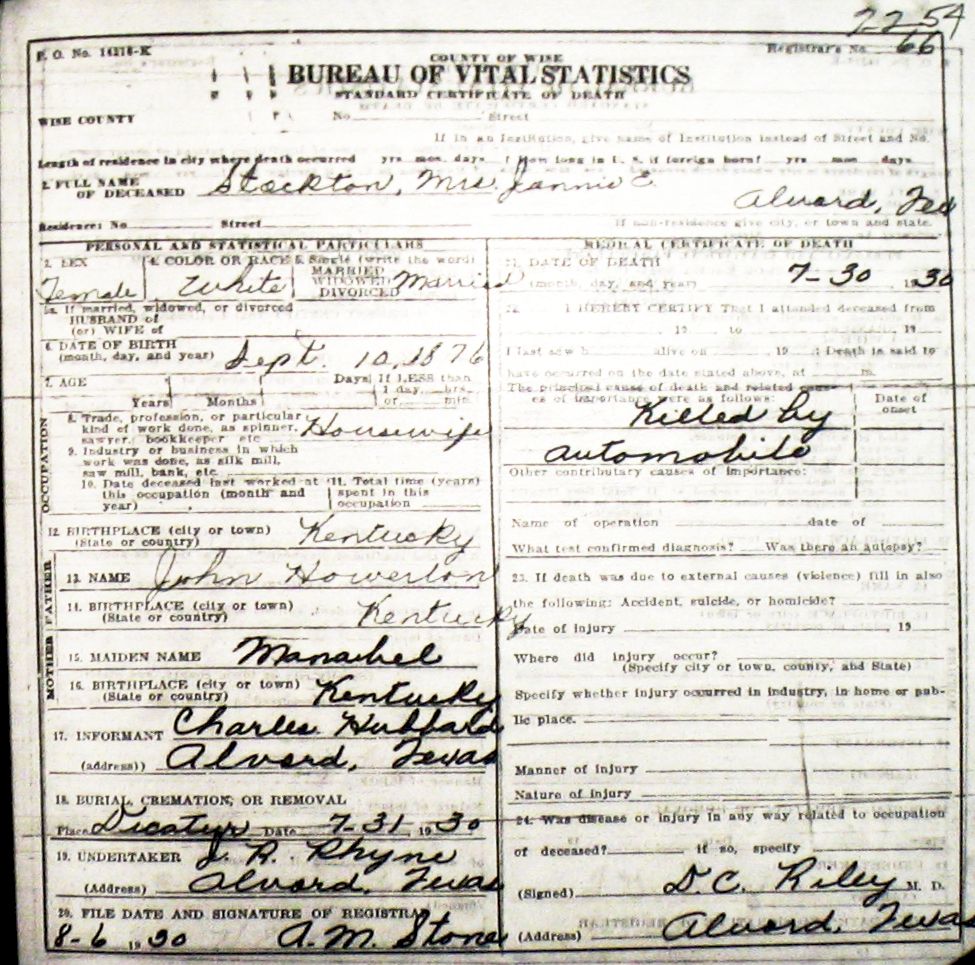 7-22 54
F. O. No. 14276-K
Registrar's No. 66
COUNTY OF WISE
BUREAU OF VITAL STATISTICS
STANDARD CERTIFICATE OF DEATH
WISE COUNTY
No. Street
If in an Institution, give name of Institution instead of Street and No.
Length of residence in city where death occurred yrs mos. days. How long in U. S. if foreign born? yrs mos days.
2. FULL NAME OF DECEASED Stockton, Mrs. Jennie E.
Alvord, Tex
Residence: No Street If non-residence give city, or town and state.
PERSONAL AND STATISTICAL PARTICULARS
3. SEX Female
4. COLOR OR RACE White
5. Single (write the word)
MARRIED
WIDOWED
DIVORCED Married
5a. If married, widowed, or divorced
HUSBAND of
(or) WIFE of
6. DATE OF BIRTH
(month, day, and year) Sept. 10, 1876
7. AGE Years Months Days If LESS than
1 day hrs.
or min.
OCCUPATION
8. Trade, profession, or particular
kind of work done, as spinner,
sawyer, bookkeeper etc Housewife
9. Industry or business in which
work was done, as silk mill,
saw mill, bank, etc
10. Date deceased last worked at
this occupation (month and
year)
11. Total time (years)
spent in this
occupation
12. BIRTHPLACE (city or town)
(State or country) Kentucky
FATHER
13. NAME John Howerton
14. BIRTHPLACE (city or town)
(State or country) Kentucky
MOTHER
15. MAIDEN NAME
16. BIRTHPLACE (city or town)
(State or country) Kentucky
17. INFORMANT Charles Hubbard
(address)) Alvord, Texas
18. BURIAL, CREMATION, OR REMOVAL
Place Decatur Date 7-31 1930
19. UNDERTAKER J. R. Rhyne
(Address) Alvord, Texas
20. FILE DATE AND SIGNATURE OF REGISTRAR
8-6 1930 A. M. Stone
MEDICAL CERTIFICATE OF DEATH
21. DATE OF DEATH
(month, day, and year) 7-30 1930
22. I HEREBY CERTIFY That I attended deceased from
19 to 19
I last saw h alive on 19 : Death is said to
have occurred on the date stated above, at m.
The principal cause of death and related caus-
es of importance were as follows:
Date of
onset
Killed by
automobile
Other contributary causes of importance:
Name of operation date of
What test confirmed diagnosis? Was there an autopsy?
23. If death was due to external causes (violence) fill in also
the following: Accident, suicide, or homicide?
Date of injury 19
Where did injury occur?
(Specify city or town, county, and State)
Specify whether injury occurred in industry, in home or pub-
lic place.
Manner of injury
Nature of injury
24. Was disease or injury in any way related to occupation
of deceased? if so, specify
(Signed) D. C. Riley M. D.
(Address) Alvord, Texas